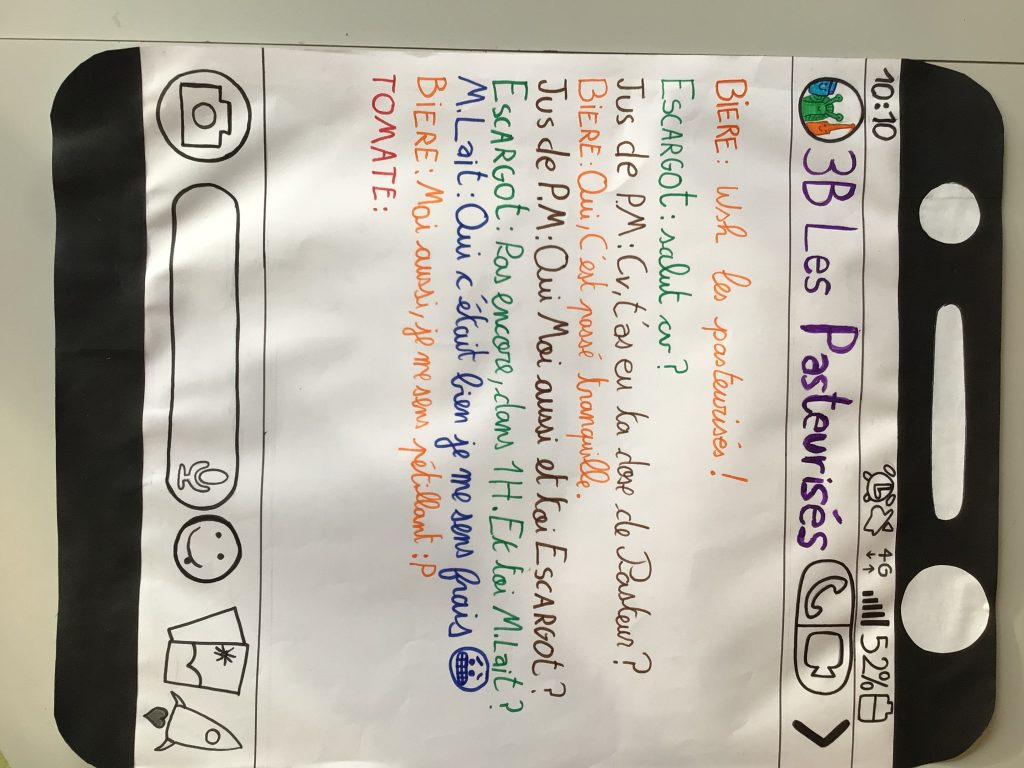 10:10 4G 52%
3B Les Pasteurisés
BIERE: wsh les pasteurisés!
ESCARGOT: salut cv?
Jus de P.M: Cv, t'as eu ta dose de Pasteur?
BIERE: Oui, C'est passé tranquille.
Jus de P.M: Oui Moi aussi et toi ESCARGOT?
ESCARGOT: Pas encore, dans 1H. Et toi M.Lait?
M.Lait: Oui c'était bien je me sens frais
BIERE: Moi aussi, je me sens pétillant :P
TOMATE: